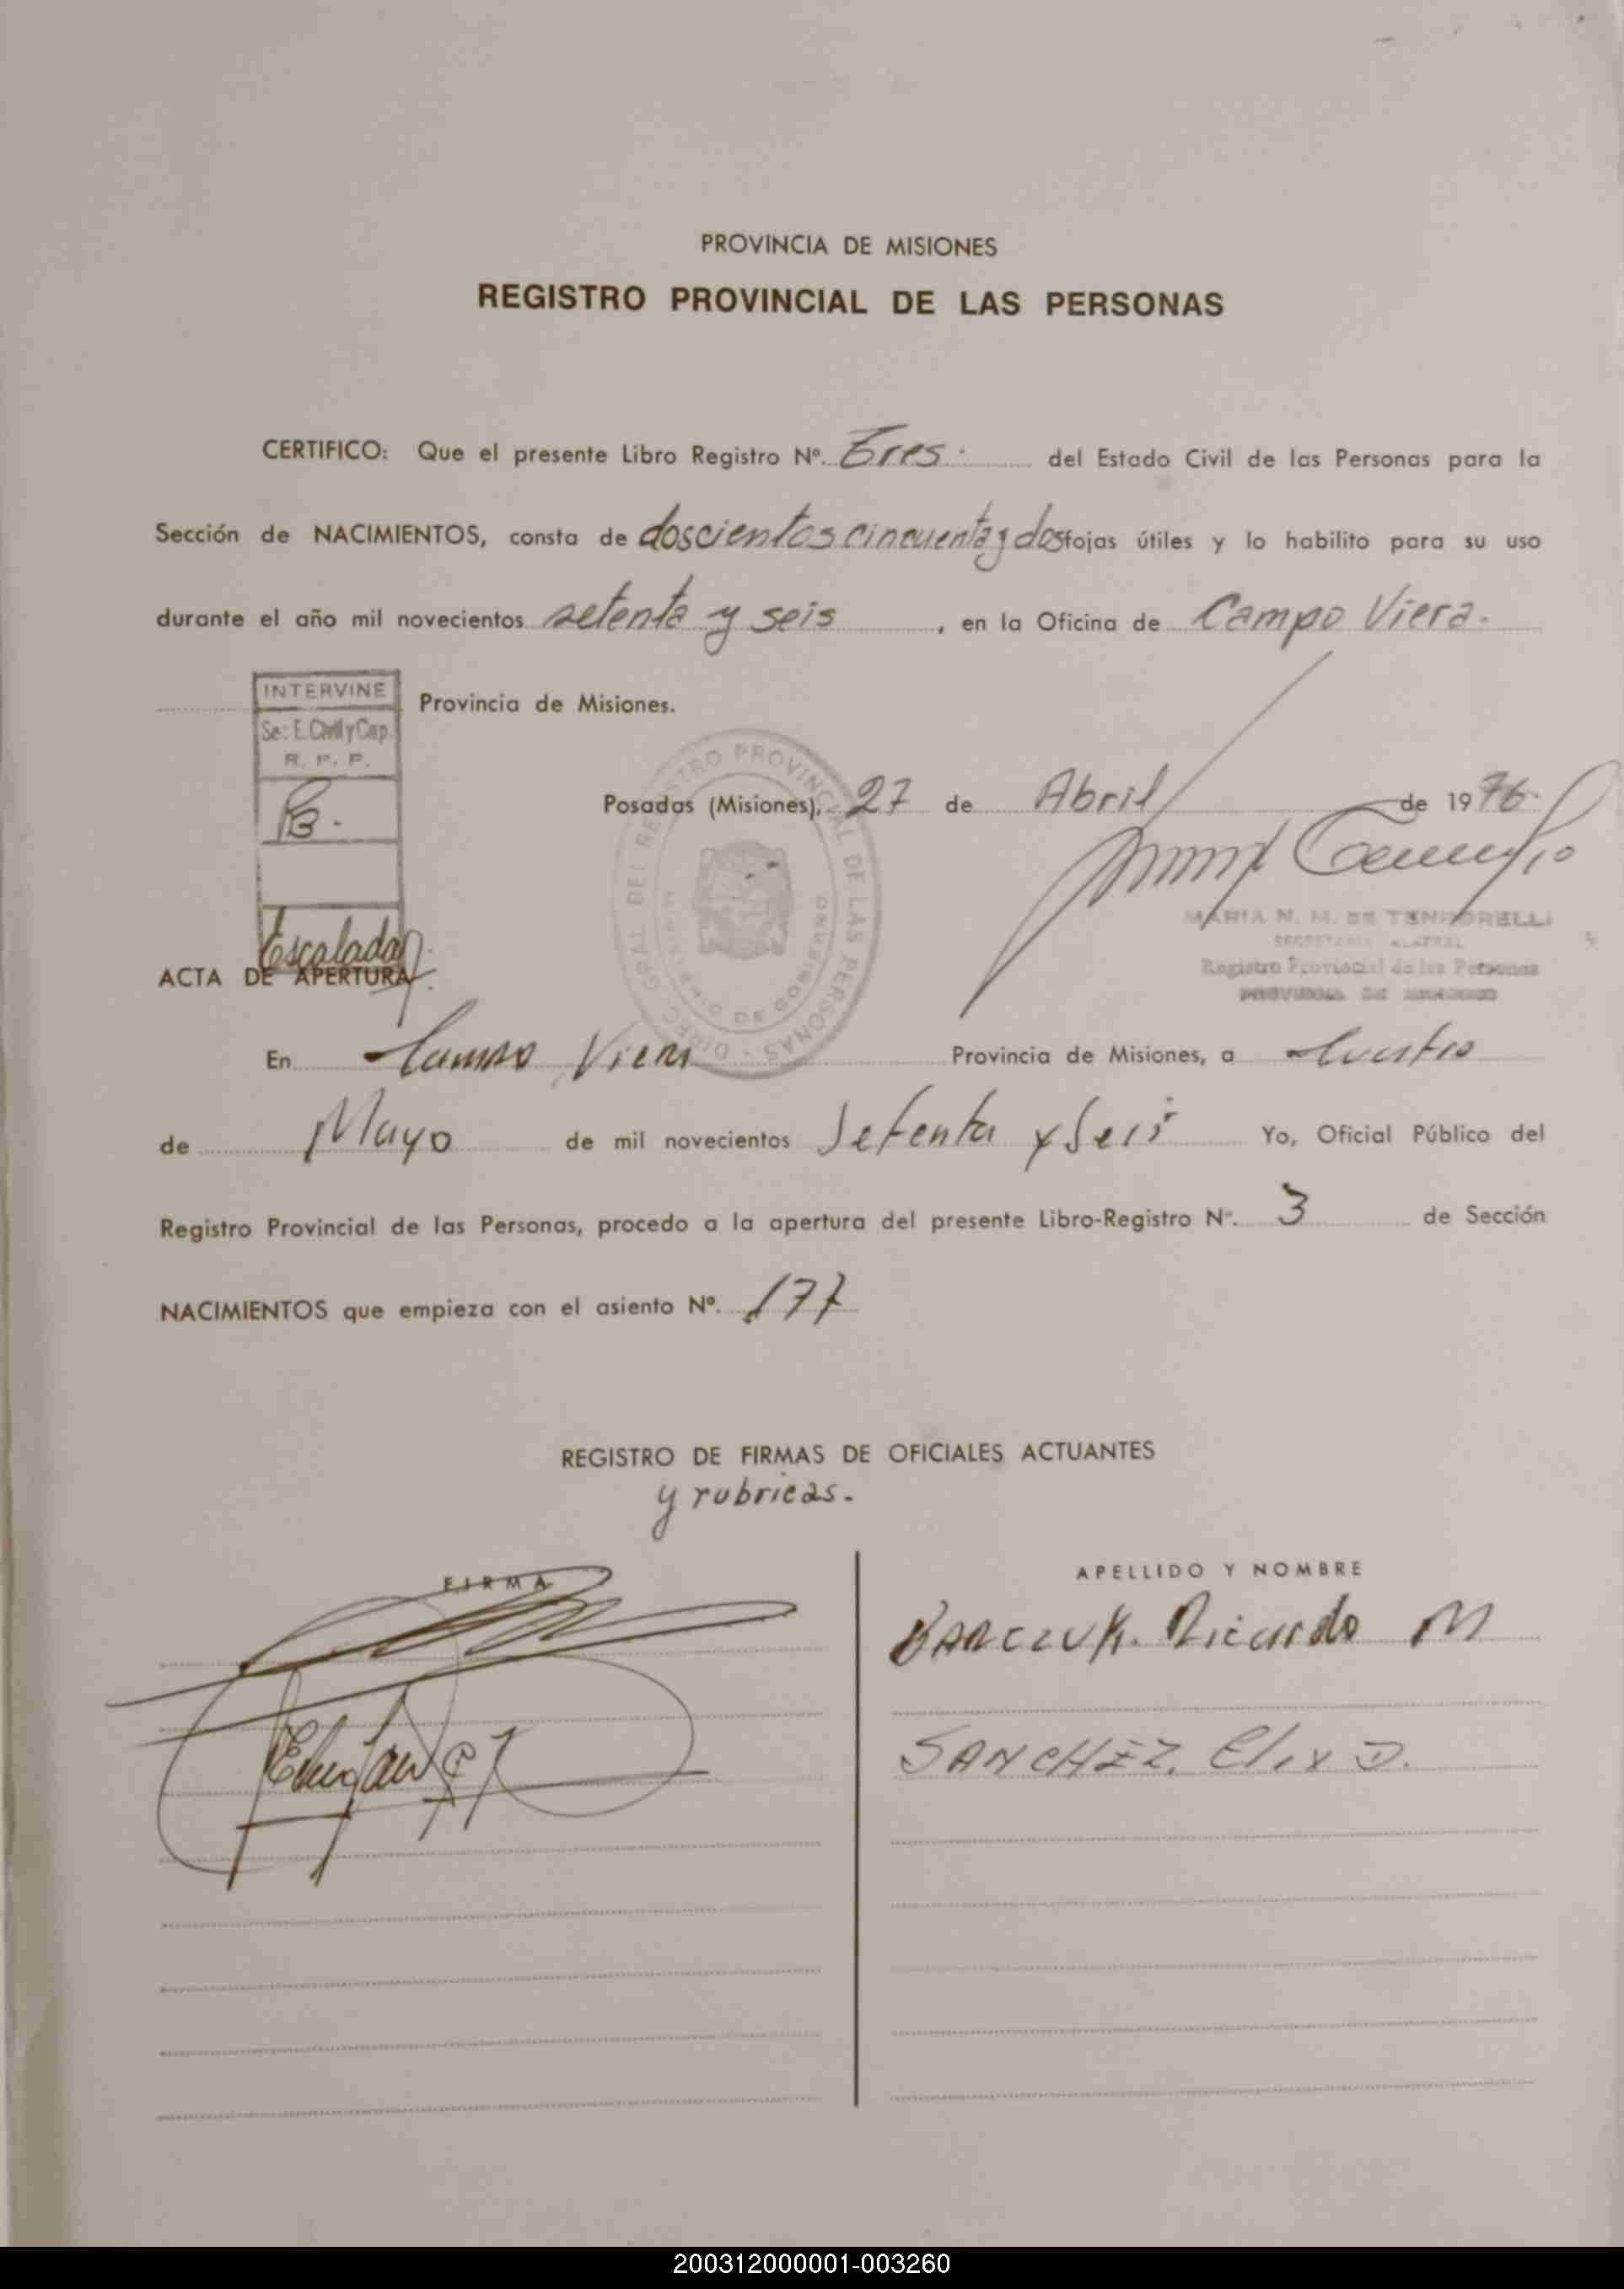 PROVINCIA DE MISIONES
REGISTRO PROVINCIAL DE LAS PERSONAS
CERTIFICO: Que el presente Libro Registro Nº. Tres. del Estado Civil de las Personas para la
Sección de NACIMIENTOS, consta de doscientos cincuenta y dos fojas útiles y lo habilito para su uso
durante el año mil novecientos setenta y seis, en la Oficina de Campo Viera.
Provincia de Misiones.
INTERVINE
Se: E. Civil y Cap.
R. P. P.
Posadas (Misiones), 27 de Abril de 1976.
DIREC. GRAL. DEL REGISTRO PROVINCIAL DE LAS PERSONAS
MINISTERIO DE GOBIERNO
MARIA N. M. DE
Registro Provincial de las Personas
PROVINCIA DE MISIONES
Escalada
ACTA DE APERTURA
En Campo Viera Provincia de Misiones, a Cuatro
de Mayo de mil novecientos Setenta y Seis Yo, Oficial Público del
Registro Provincial de las Personas, procedo a la apertura del presente Libro-Registro Nº. 3 de Sección
NACIMIENTOS que empieza con el asiento Nº. 177
REGISTRO DE FIRMAS DE OFICIALES ACTUANTES
y rubricas.
FIRMA
APELLIDO Y NOMBRE
BARCZUK. Ricardo M
SANCHEZ. Elix D.
200312000001-003260